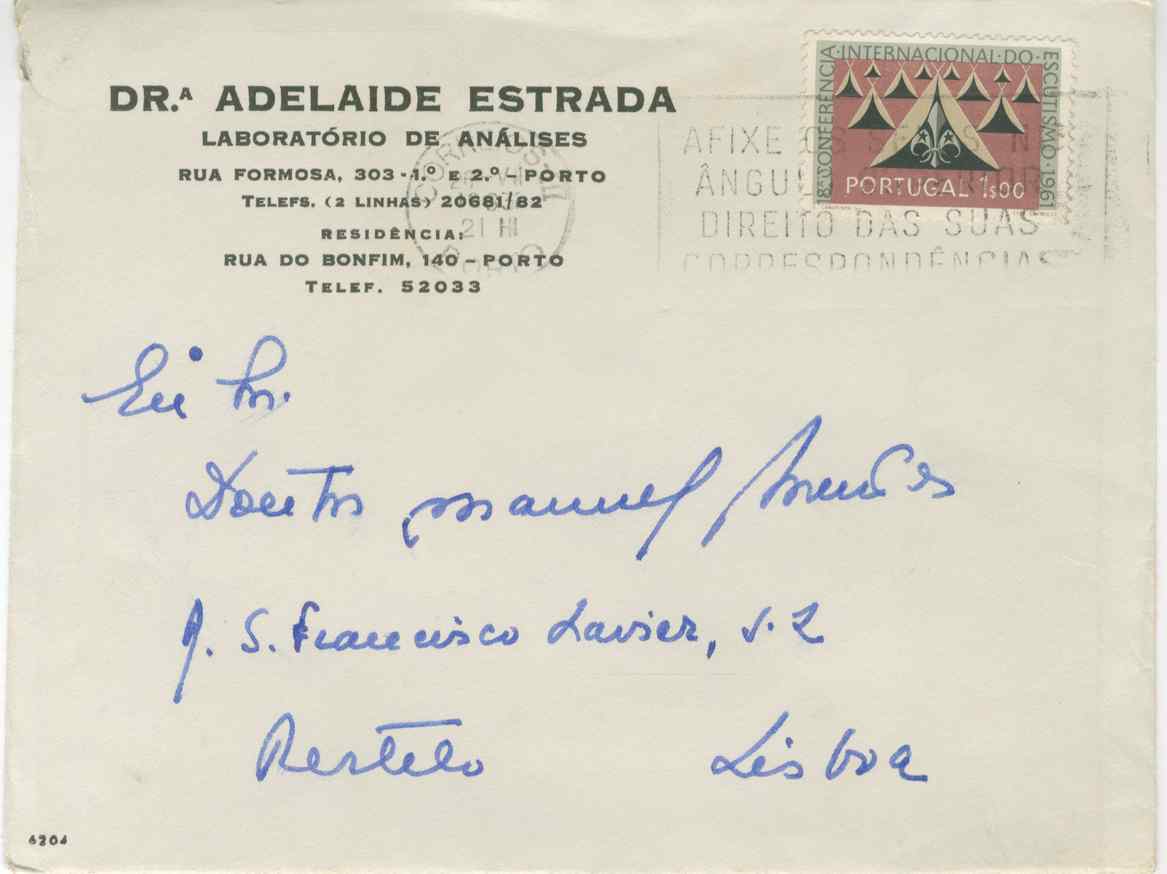 DR.ª ADELAIDE ESTRADA
LABORATÓRIO DE ANÁLISES
RUA FORMOSA, 303-1.º E 2.º-PORTO
TELEFS. (2 LINHAS) 20681/82
RESIDÊNCIA:
RUA DO BONFIM, 140-PORTO
TELEF. 52033
21 HI
AFIXE OS SELOS N
ÂNGUL
DIREITO DAS SUAS
CORRESPONDÊNCIAS
18ª CONFERÊNCIA·INTERNACIONAL·DO·ESCUTISMO·1961
PORTUGAL 1$00
Doutor Manuel Mendes
R. S. Francisco Xavier,
Restelo Lisboa
6204